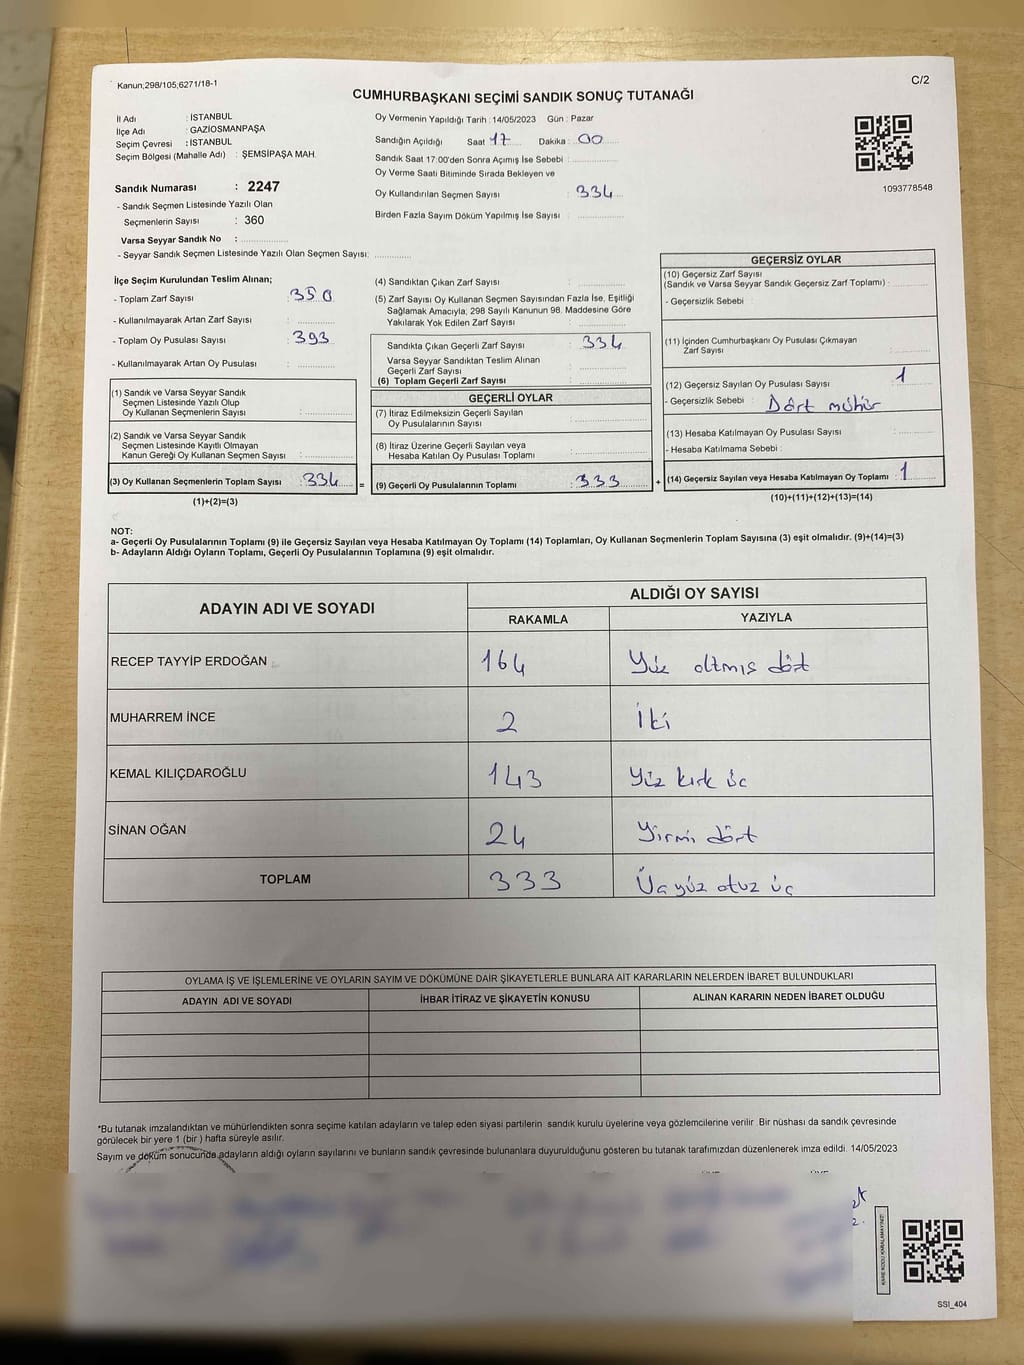 Kanun;298/105;6271/18-1
C/2
CUMHURBAŞKANI SEÇİMİ SANDIK SONUÇ TUTANAĞI
İl Adı : İSTANBUL
İlçe Adı : GAZİOSMANPAŞA
Seçim Çevresi : İSTANBUL
Seçim Bölgesi (Mahalle Adı) : ŞEMSİPAŞA MAH.
Sandık Numarası : 2247
- Sandık Seçmen Listesinde Yazılı Olan
Seçmenlerin Sayısı : 360
Varsa Seyyar Sandık No :
- Seyyar Sandık Seçmen Listesinde Yazılı Olan Seçmen Sayısı:
Oy Vermenin Yapıldığı Tarih : 14/05/2023 Gün : Pazar
Sandığın Açıldığı Saat 17 Dakika : 00
Sandık Saat 17:00'den Sonra Açımış İse Sebebi :
Oy Verme Saati Bitiminde Sırada Bekleyen ve
Oy Kullandırılan Seçmen Sayısı : 334
Birden Fazla Sayım Döküm Yapılmış İse Sayısı :
1093778548
İlçe Seçim Kurulundan Teslim Alınan;
- Toplam Zarf Sayısı : 350
- Kullanılmayarak Artan Zarf Sayısı :
- Toplam Oy Pusulası Sayısı : 393
- Kullanılmayarak Artan Oy Pusulası :
(1) Sandık ve Varsa Seyyar Sandık
Seçmen Listesinde Yazılı Olup
Oy Kullanan Seçmenlerin Sayısı :
(2) Sandık ve Varsa Seyyar Sandık
Seçmen Listesinde Kayıtlı Olmayan
Kanun Gereği Oy Kullanan Seçmen Sayısı :
(3) Oy Kullanan Seçmenlerin Toplam Sayısı : 334
(1)+(2)=(3)
=
(4) Sandıktan Çıkan Zarf Sayısı :
(5) Zarf Sayısı Oy Kullanan Seçmen Sayısından Fazla İse, Eşitliği
Sağlamak Amacıyla, 298 Sayılı Kanunun 98. Maddesine Göre
Yakılarak Yok Edilen Zarf Sayısı :
Sandıkta Çıkan Geçerli Zarf Sayısı : 334
Varsa Seyyar Sandıktan Teslim Alınan
Geçerli Zarf Sayısı :
(6) Toplam Geçerli Zarf Sayısı :
GEÇERLİ OYLAR
(7) İtiraz Edilmeksizin Geçerli Sayılan
Oy Pusulalarının Sayısı :
(8) İtiraz Üzerine Geçerli Sayılan veya
Hesaba Katılan Oy Pusulası Toplamı :
(9) Geçerli Oy Pusulalarının Toplamı : 333
+
GEÇERSİZ OYLAR
(10) Geçersiz Zarf Sayısı
(Sandık ve Varsa Seyyar Sandık Geçersiz Zarf Toplamı) :
- Geçersizlik Sebebi :
(11) İçinden Cumhurbaşkanı Oy Pusulası Çıkmayan
Zarf Sayısı :
(12) Geçersiz Sayılan Oy Pusulası Sayısı : 1
- Geçersizlik Sebebi : Dört mühür
(13) Hesaba Katılmayan Oy Pusulası Sayısı :
- Hesaba Katılmama Sebebi :
(14) Geçersiz Sayılan veya Hesaba Katılmayan Oy Toplamı : 1
(10)+(11)+(12)+(13)=(14)
NOT:
a- Geçerli Oy Pusulalarının Toplamı (9) ile Geçersiz Sayılan veya Hesaba Katılmayan Oy Toplamı (14) Toplamları, Oy Kullanan Seçmenlerin Toplam Sayısına (3) eşit olmalıdır. (9)+(14)=(3)
b- Adayların Aldığı Oyların Toplamı, Geçerli Oy Pusulalarının Toplamına (9) eşit olmalıdır.
ADAYIN ADI VE SOYADI ALDIĞI OY SAYISI
RAKAMLA YAZIYLA
RECEP TAYYİP ERDOĞAN 164 Yüz altmış dört
MUHARREM İNCE 2 İki
KEMAL KILIÇDAROĞLU 143 Yüz kırk üc
SİNAN OĞAN 24 Yirmi dört
TOPLAM 333 Üçyüz otuz üç
OYLAMA İŞ VE İŞLEMLERİNE VE OYLARIN SAYIM VE DÖKÜMÜNE DAİR ŞİKAYETLERLE BUNLARA AİT KARARLARIN NELERDEN İBARET BULUNDUKLARI
ADAYIN ADI VE SOYADI İHBAR İTİRAZ VE ŞİKAYETİN KONUSU ALINAN KARARIN NEDEN İBARET OLDUĞU
*Bu tutanak imzalandıktan ve mühürlendikten sonra seçime katılan adayların ve talep eden siyasi partilerin sandık kurulu üyelerine veya gözlemcilerine verilir. Bir nüshası da sandık çevresinde
görülecek bir yere 1 (bir ) hafta süreyle asılır.
Sayım ve döküm sonucunda adayların aldığı oyların sayılarını ve bunların sandık çevresinde bulunanlara duyurulduğunu gösteren bu tutanak tarafımızdan düzenlenerek imza edildi. 14/05/2023
KARE KODU KARALAMAYINIZ!
SSI_404